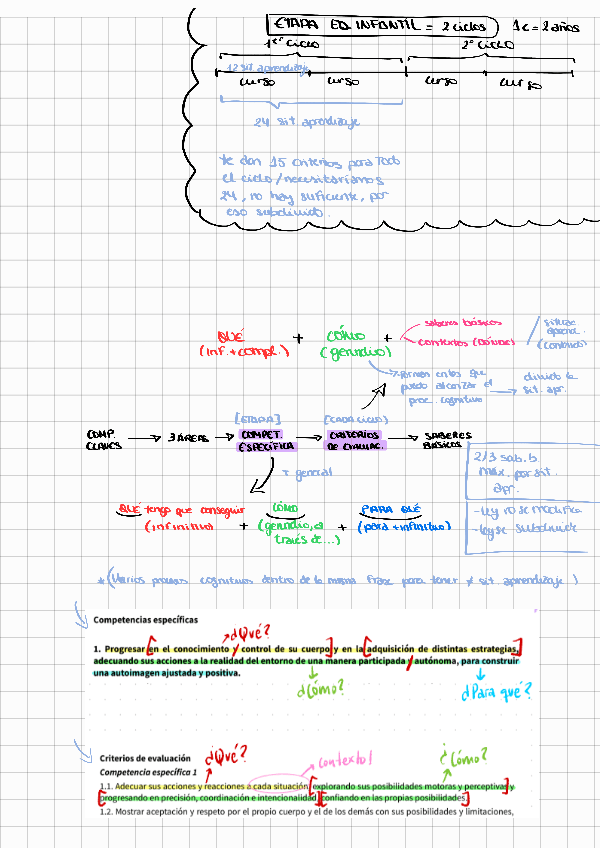 ETAPA ED. INFANTIL = 2 ciclos 1c = 2 años
1er ciclo 2º ciclo
12 sit. aprendizaje
curso curso curso curso
24 sit. aprendizaje
te dan 15 criterios para todo
el ciclo / necesitaríamos
24, no hay suficiente, por
eso subdivido.
QUÉ + CÓMO + saberes básicos
(inf. + compl.) (gerundio) contextos (DÓNDE)
(contenido)
formas en las que
puedo alcanzar el
proc. cognitivo
divido la
sit. apr.
[ETAPA] [CADA CICLO]
COMP. CLAVES → 3 ÁREAS → COMPET. ESPECÍFICA → CRITERIOS DE EVALUAC. → SABERES BÁSICOS
+ general
2/3 sab. b.
máx. por sit.
apr.
- ley no se modifica
- ley se subdivide
QUÉ tengo que conseguir CÓMO PARA QUÉ
(infinitivo) + (gerundio, a + (para + infinitivo)
través de...)
*(Varios procesos cognitivos dentro de la misma frase para tener ≠ sit. aprendizaje)
Competencias específicas
¿Qué?
1. Progresar en el conocimiento y control de su cuerpo y en la adquisición de distintas estrategias,
adecuando sus acciones a la realidad del entorno de una manera participada y autónoma, para construir
una autoimagen ajustada y positiva.
¿Cómo? ¿Para qué?
Criterios de evaluación ¿Qué? contexto! ¿Cómo?
Competencia específica 1
1.1. Adecuar sus acciones y reacciones a cada situación, explorando sus posibilidades motoras y perceptivas y
progresando en precisión, coordinación e intencionalidad, confiando en las propias posibilidades.
1.2. Mostrar aceptación y respeto por el propio cuerpo y el de los demás con sus posibilidades y limitaciones,